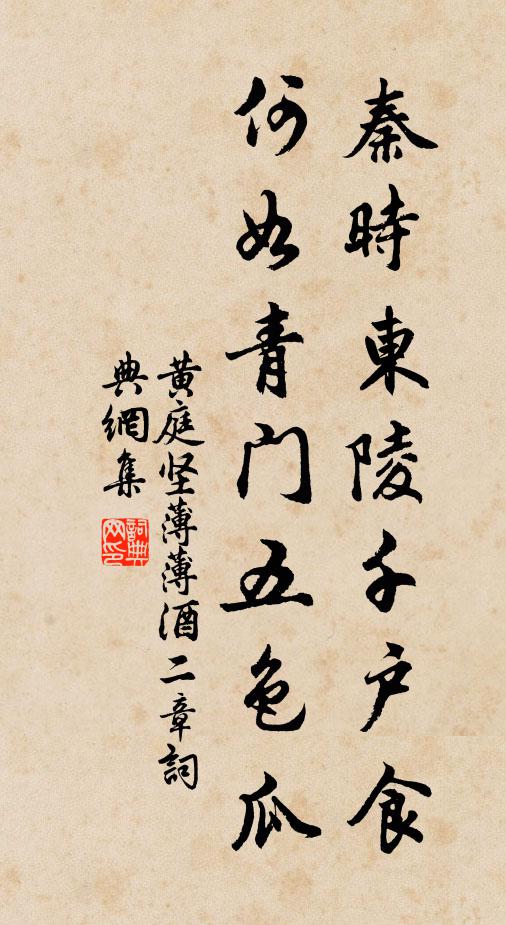 秦時東陵千户食
何如青门五色瓜
黄庭坚薄薄酒二章詞
典網集
詞典
网印